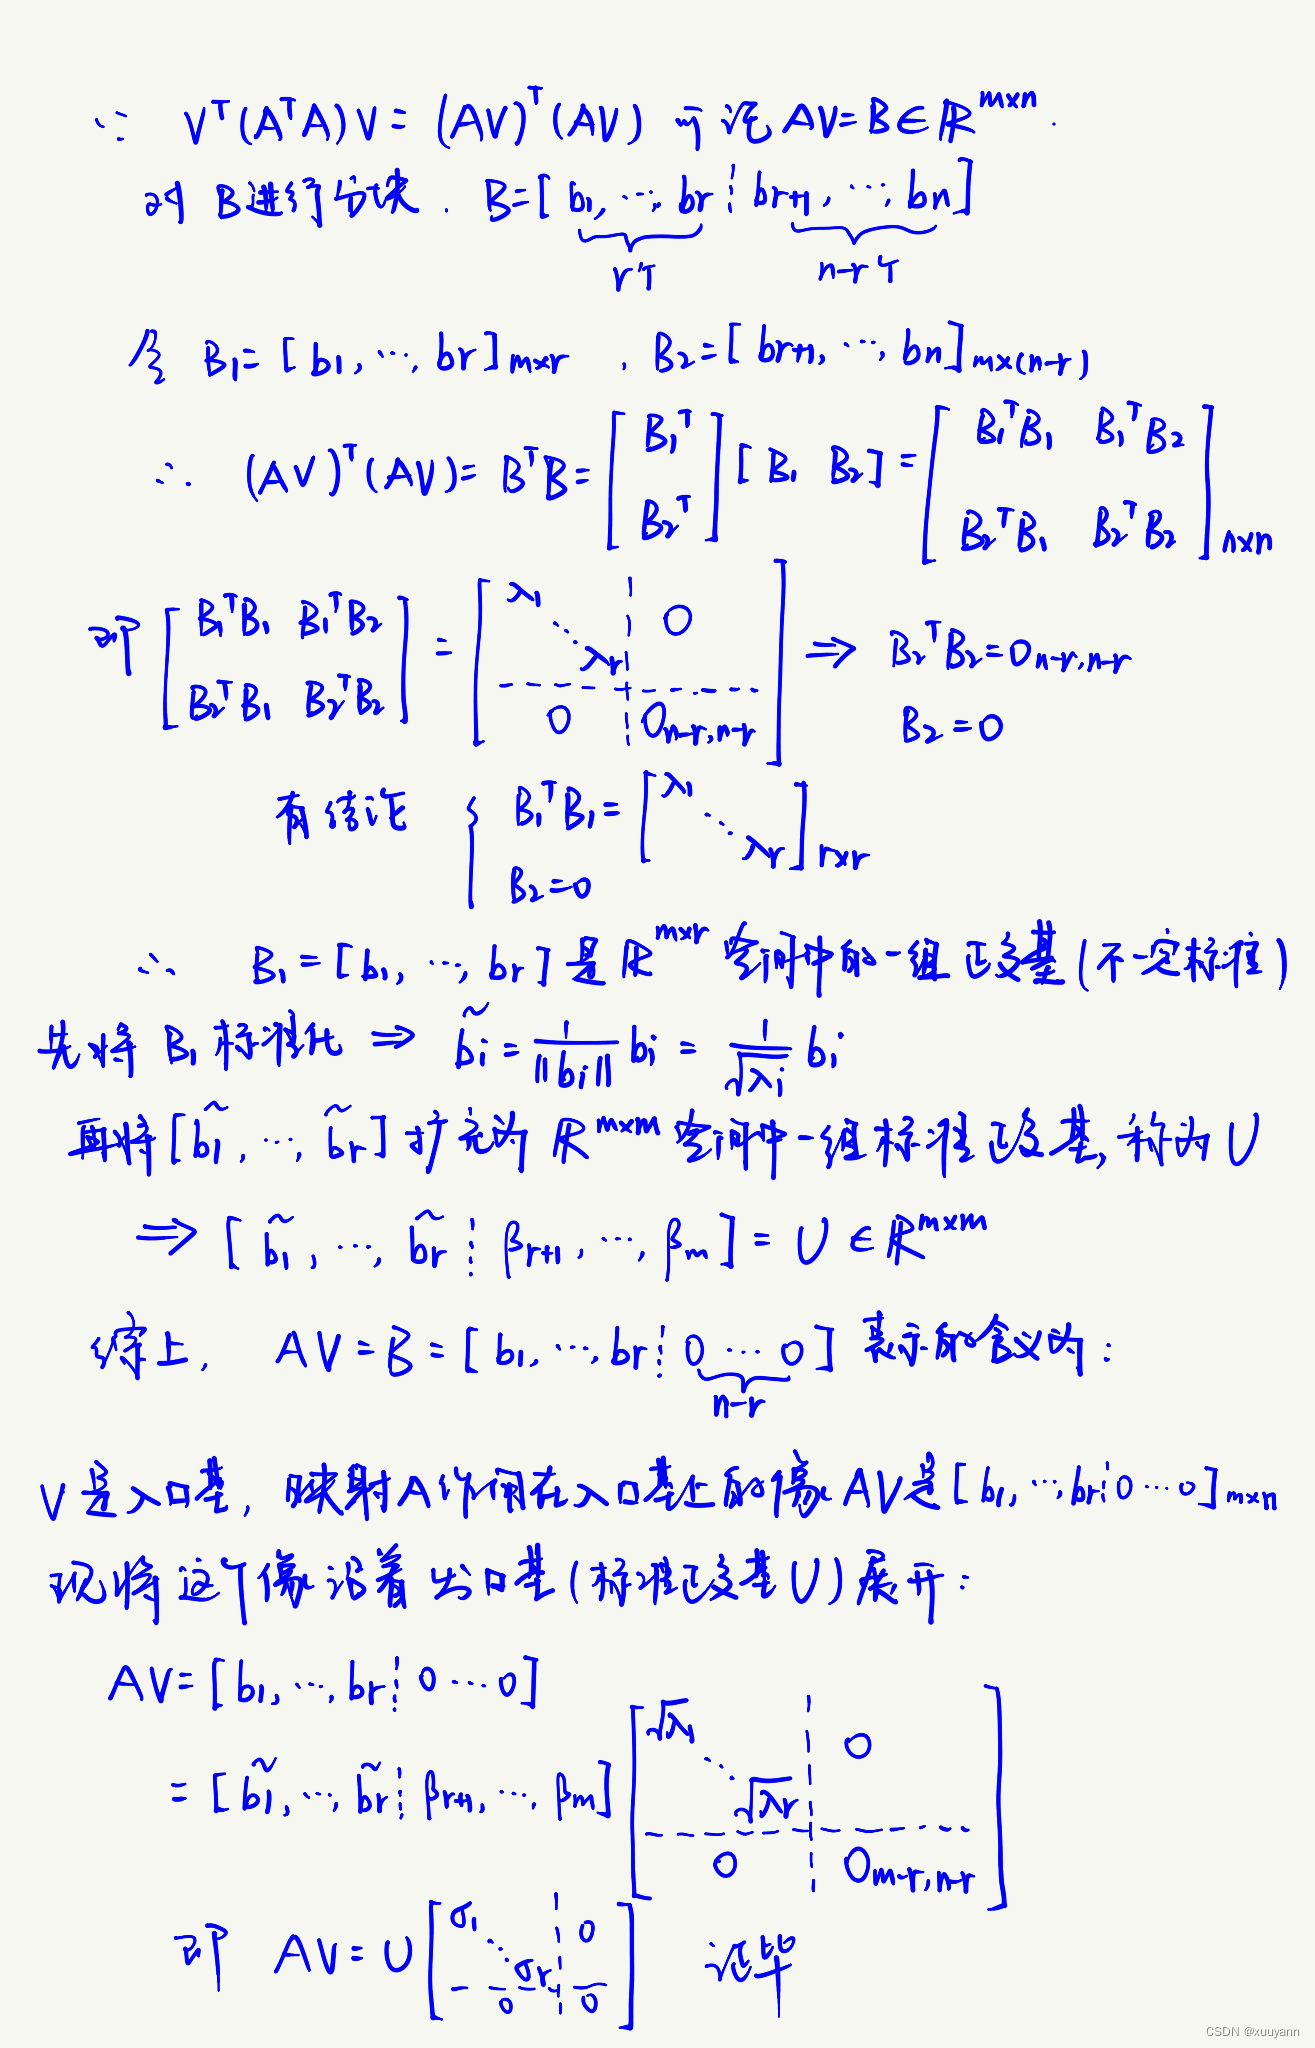 ∵ V^T(A^TA)V = (AV)^T(AV) 可记 AV=B∈ℝ^{m×n}.
对 B进行分块. B=[b1, ⋯, br ⋮ br+1, ⋯, bn]
r个 n-r个
令 B1=[b1, ⋯, br]m×r , B2=[br+1, ⋯, bn]m×(n-r)
∴ (AV)^T(AV)= B^TB= [B1^T; B2^T] [B1 B2] = [B1^TB1 B1^TB2; B2^TB1 B2^TB2]n×n
即 [B1^TB1 B1^TB2; B2^TB1 B2^TB2] = [λ1 ⋱ λr 0; 0 0n-r,n-r] ⇒ B2^TB2=0n-r,n-r
B2=0
有结论 { B1^TB1= [λ1 ⋱ λr]r×r
B2=0
∴ B1=[b1, ⋯, br] 是 ℝ^{m×r} 空间中的一组正交基(不一定标准)
先将 B1 标准化 ⇒ b̃i = 1/‖bi‖ bi = 1/√λi bi
再将[b̃1, ⋯, b̃r] 扩充为 ℝ^{m×m} 空间中一组标准正交基, 称为 U
⇒ [b̃1, ⋯, b̃r ⋮ βr+1, ⋯, βm] = U ∈ ℝ^{m×m}
综上, AV=B=[b1, ⋯, br ⋮ 0 ⋯ 0] 表示的含义为:
n-r
V是入口基, 映射A作用在入口基上的像 AV是[b1, ⋯, br ⋮ 0 ⋯ 0]m×n
现将这个像沿着出口基(标准正交基U)展开:
AV=[b1, ⋯, br ⋮ 0 ⋯ 0]
=[b̃1, ⋯, b̃r ⋮ βr+1, ⋯, βm] [√λ1 ⋱ √λr 0; 0 0m-r,n-r]
即 AV=U [σ1 ⋱ σr 0; 0 0] 证毕
CSDN @xuuyann